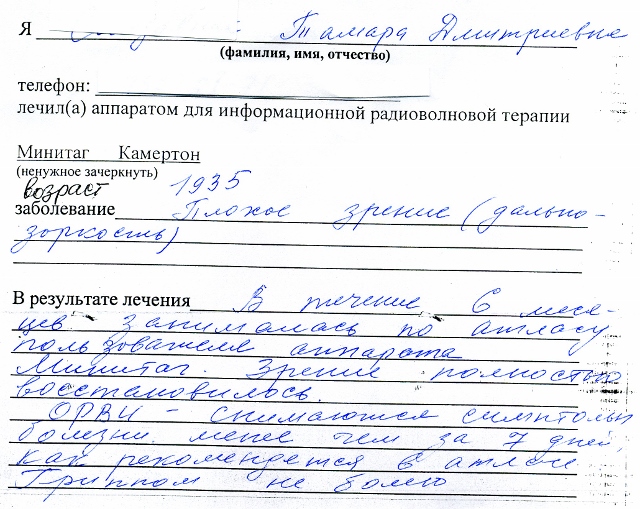 Я Тамара Дмитриевна
(фамилия, имя, отчество)
телефон:
лечил(а) аппаратом для информационной радиоволновой терапии
Минитаг Камертон
(ненужное зачеркнуть)
возраст 1935
заболевание Плохое зрение (дально-
зоркость)
В результате лечения В течение 6 меся-
цев занималась по атласу
пользователя аппарата
Минитаг. Зрение полностью
восстановилось.
ОРВИ - снимаются симптомы
болезни менее чем за 7 дней,
как рекомендется в атласе
Гриппом не болею